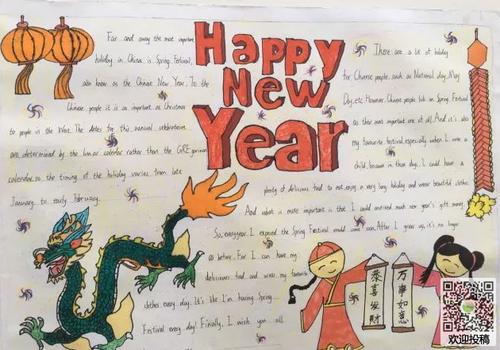 Happy
New
Year
Far and away the most important
holiday in China is Spring Festival,
also known as the Chinese New Year. To the
Chinese people it is as important as Christmas
to people in the West. The dates for this annual celebration
are determined by the lunar calendar rather than the
calendar, so the timing of the holiday varies from late
January to early February.
There are a lot of holiday
for Chinese people, such as National day, May
Day, etc. However, Chinese people look on Spring Festival
as their most important one of all. And it's also
my favourite festival, especially when I were a
child. Because in those days, I could have a
plenty of delicious food to eat, enjoy a very long holiday and wear beautiful clothes.
And what is more important is that I could received much new year's gift money.
So, every year I expected the Spring Festival would come soon. After I grow up, it's no longer
For I can have my
delicious food and wear my favourite
clothes every day. It's like I'm having Spring
Festival every day. Finally, I wish you all
恭喜發財
万事如意
欢迎投稿